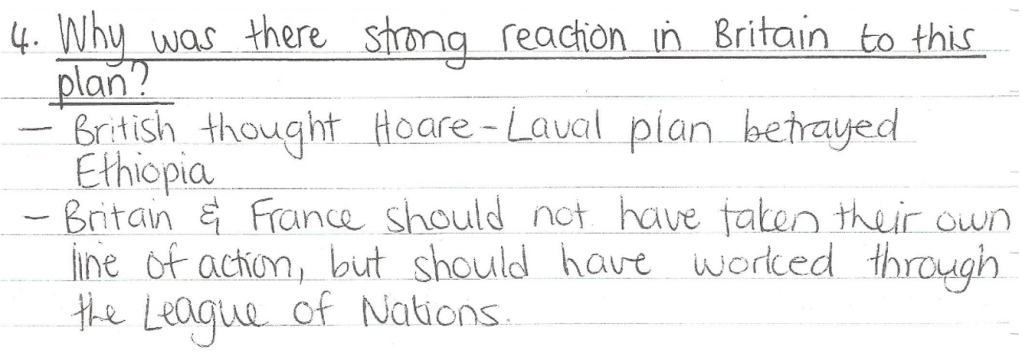 4. Why was there strong reaction in Britain to this
plan?
- British thought Hoare-Laval plan betrayed
Ethiopia
- Britain & France should not have taken their own
line of action, but should have worked through
the League of Nations.